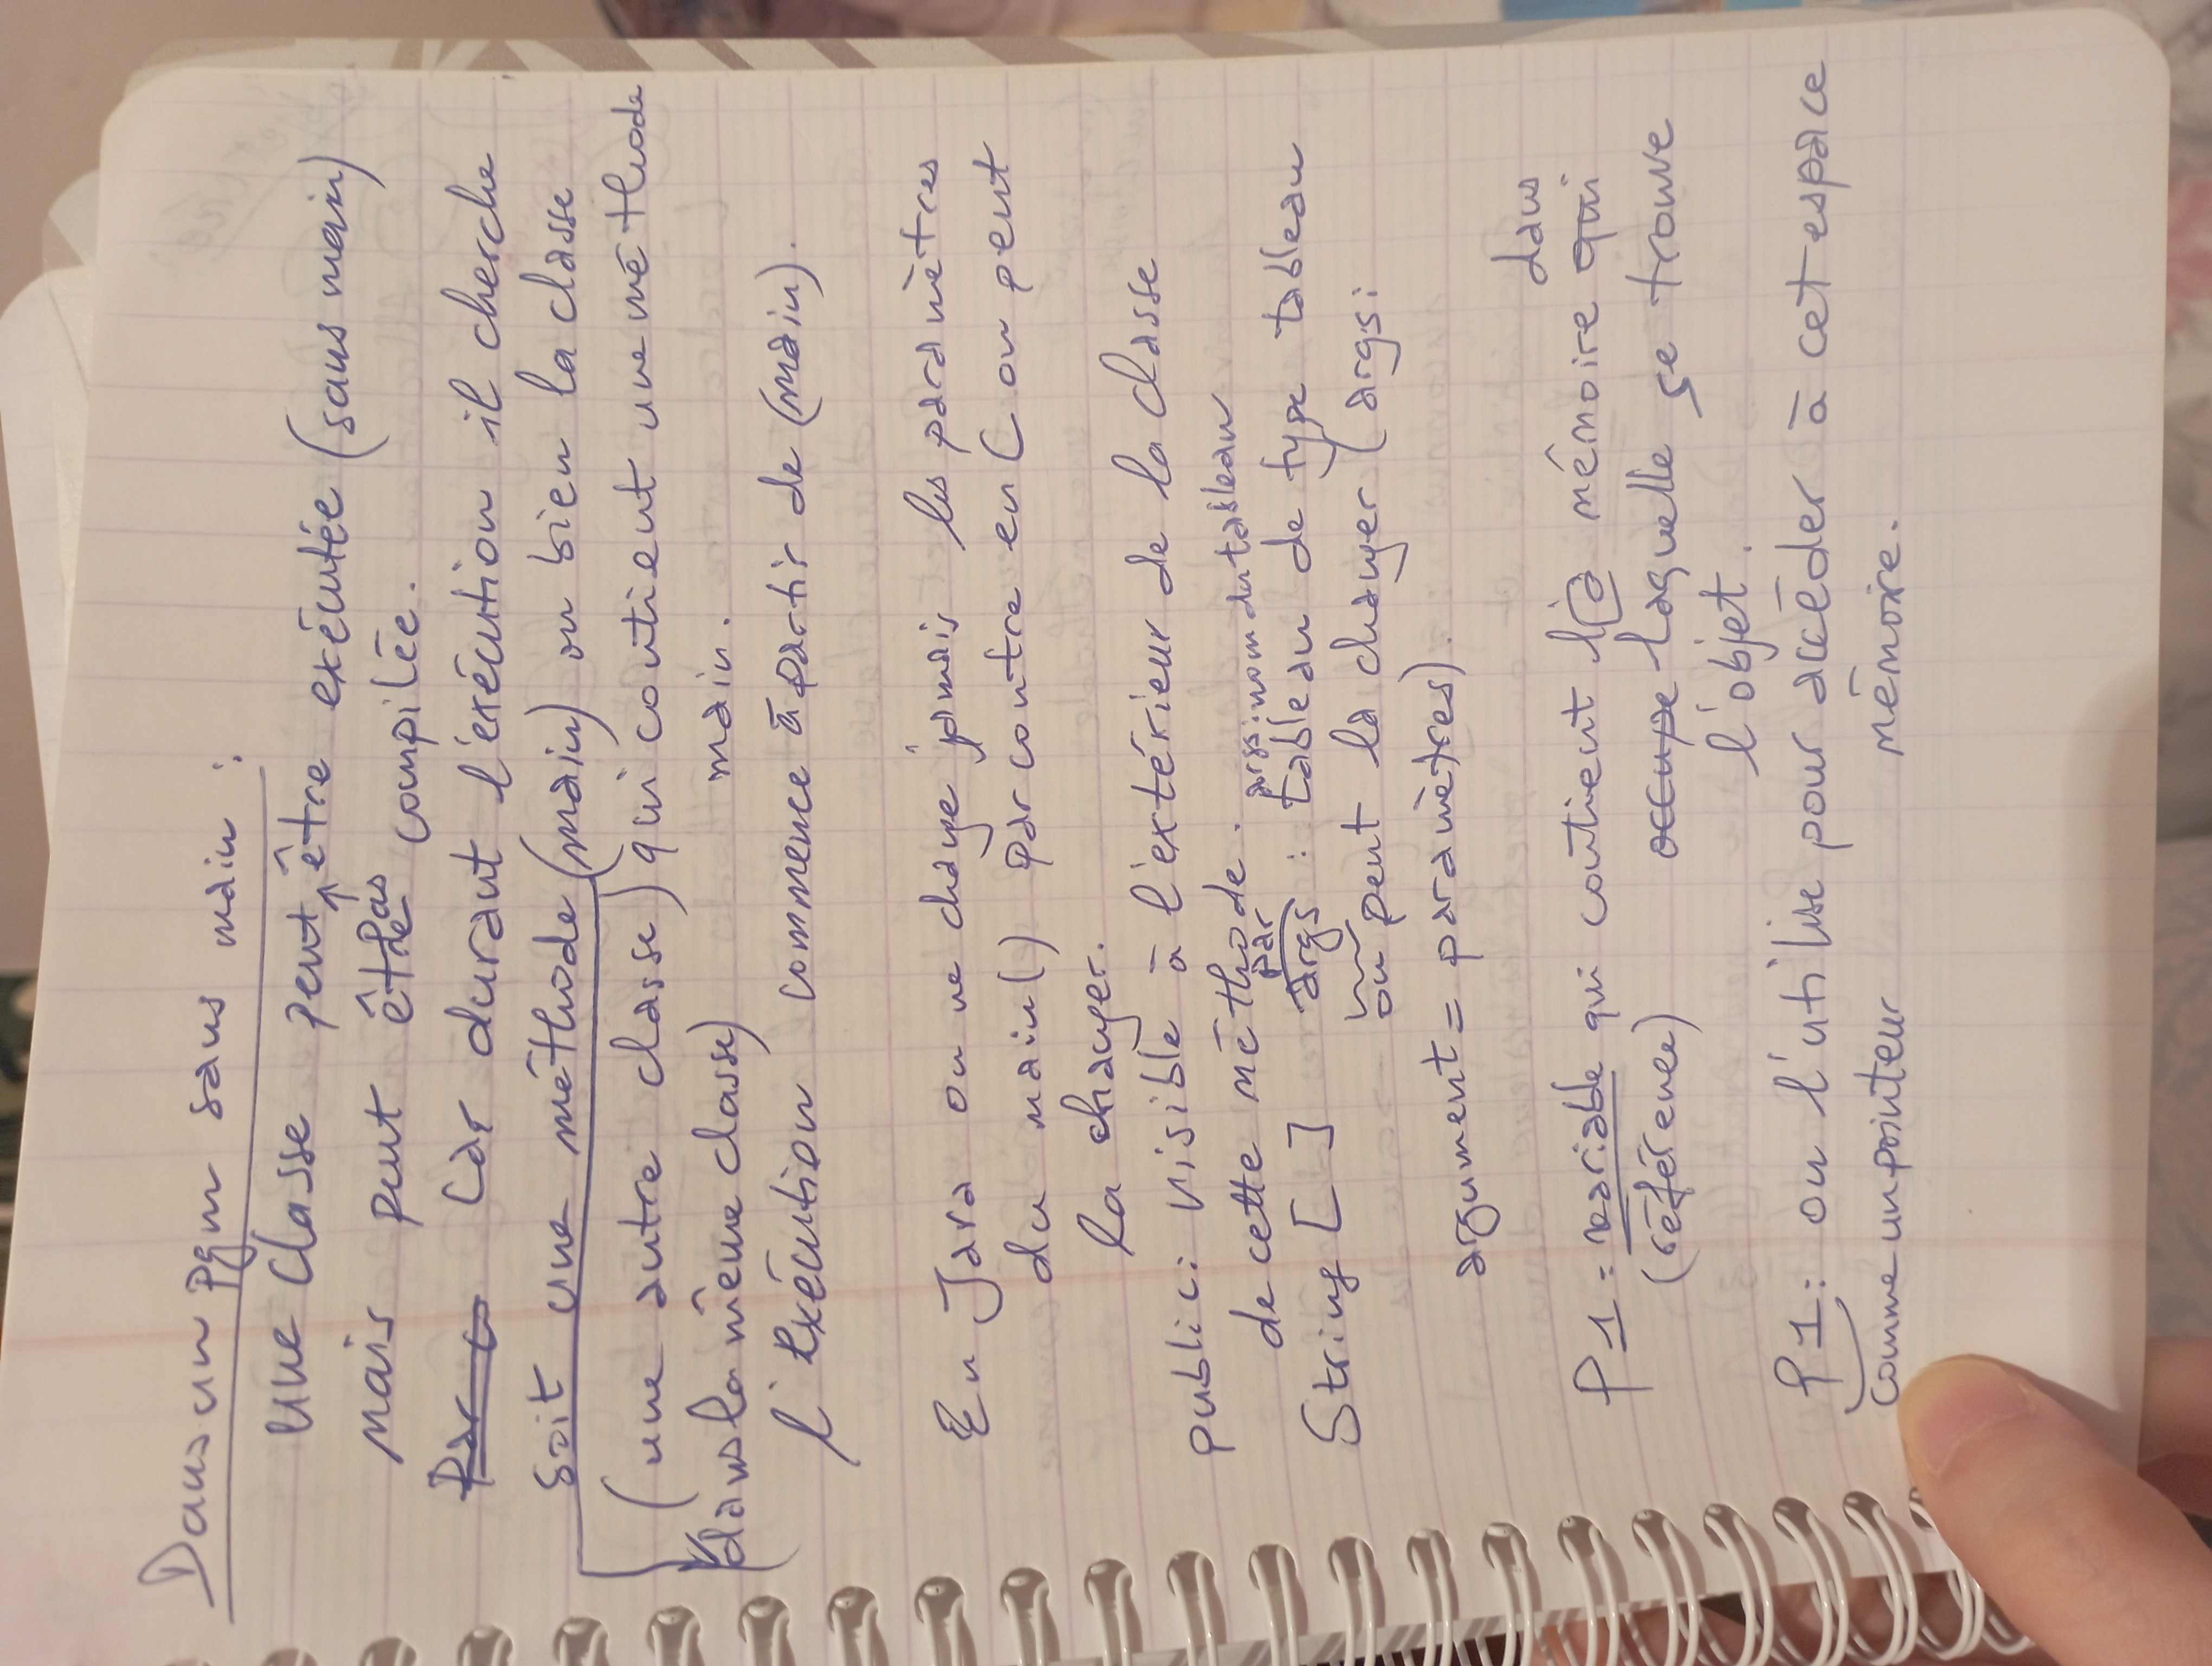 Dans un pgm sans main :
une classe peut pas être exécutée (sans main)
mais peut être compilée.
Par c Car durant l'exécution il cherche
soit une méthode (main) ou bien la classe
(une autre classe) qui contient une méthode
(dans la même classe) main.
l'exécution commence à partir de (main).
En Java on ne change jamais les paramètres
du main() par contre en C on peut
la changer.
public: visible à l'extérieur de la classe
de cette méthode.
par args: nom du tableau
String [ ] args : tableau de type tableau
on peut la changer (args:
argument = paramètres).
dans
P1 = variable qui contient la mémoire qui
(référence) occupe laquelle se trouve
l'objet.
P1: on l'utilise pour accéder à cet espace
comme un pointeur mémoire.